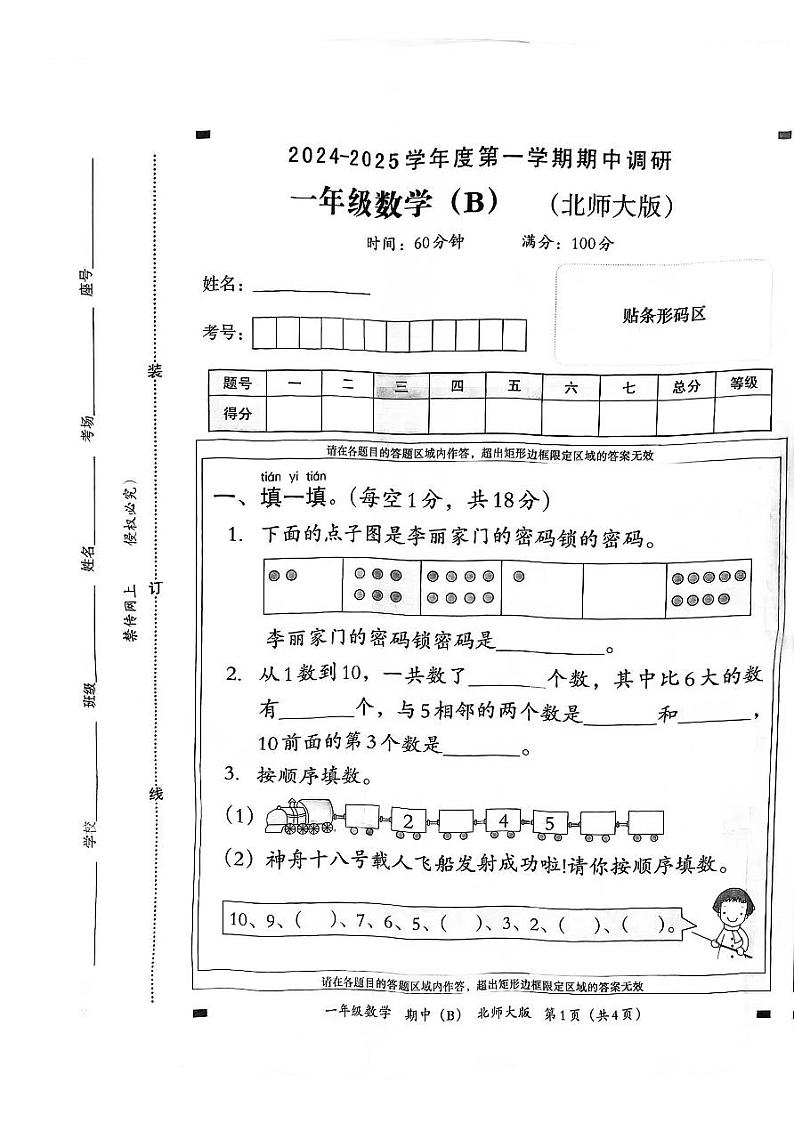 2024-2025学年度第一学期期中调研
一年级数学（B）（北师大版）
时间：60分钟 满分：100分
姓名：
考号：
贴条形码区
题号 一 二 三 四 五 六 七 总分 等级
得分
请在各题目的答题区域内作答，超出矩形边框限定区域的答案无效
tián yi tián
一、填一填。（每空1分，共18分）
1. 下面的点子图是李丽家门的密码锁的密码。
李丽家门的密码锁密码是__________。
2. 从1数到10，一共数了______个数，其中比6大的数
有______个，与5相邻的两个数是______和______，
10前面的第3个数是______。
3. 按顺序填数。
（1）
2 4 5
（2）神舟十八号载人飞船发射成功啦！请你按顺序填数。
10、9、（ ）、7、6、5、（ ）、3、2、（ ）、（ ）。
请在各题目的答题区域内作答，超出矩形边框限定区域的答案无效
一年级数学 期中（B） 北师大版 第1页（共4页）
学校 班级 姓名 考场 座号
禁传网上 侵权必究）
装 订 线